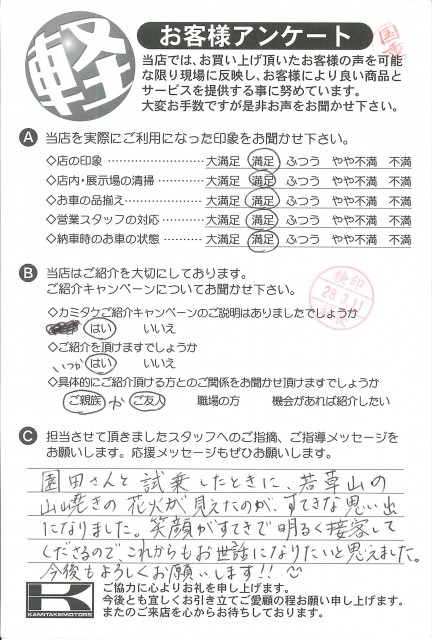 軽
お客様アンケート
当店では、お買い上げ頂いたお客様の声を可能
な限り現場に反映し、お客様により良い商品と
サービスを提供する事に努めています。
大変お手数ですが是非お声をお聞かせ下さい。
A 当店を実際にご利用になった印象をお聞かせ下さい。
◇店の印象 大満足 満足 ふつう やや不満 不満
◇店内・展示場の清掃 大満足 満足 ふつう やや不満 不満
◇お車の品揃え 大満足 満足 ふつう やや不満 不満
◇営業スタッフの対応 大満足 満足 ふつう やや不満 不満
◇納車時のお車の状態 大満足 満足 ふつう やや不満 不満
B 当店はご紹介を大切にしております。
ご紹介キャンペーンについてお聞かせ下さい。
検印
28.3.11
◇カミタケご紹介キャンペーンのご説明はありましたでしょうか
はい いいえ
◇ご紹介を頂けますでしょうか
いつか はい いいえ
◇具体的にご紹介頂ける方とのご関係をお聞かせ頂けますでしょうか
ご親族 か ご友人 職場の方 機会があれば紹介したい
C 担当させて頂きましたスタッフへのご指摘、ご指導メッセージを
お願いします。応援メッセージもぜひお願いします。
園田さんと試乗したときに、若草山の
山焼きの花火が見えたのが、すてきな思い出
になりました。笑顔がすてきで明るく接客して
くださるので、これからもお世話になりたいと思えました。
今後もよろしくお願いします!!
KAMITAKEMOTORS
ご協力に心よりお礼を申し上げます。
今後とも宜しくお引き立てご愛顧の程お願い申し上げます。
またのご来店を心からお待ちしております。